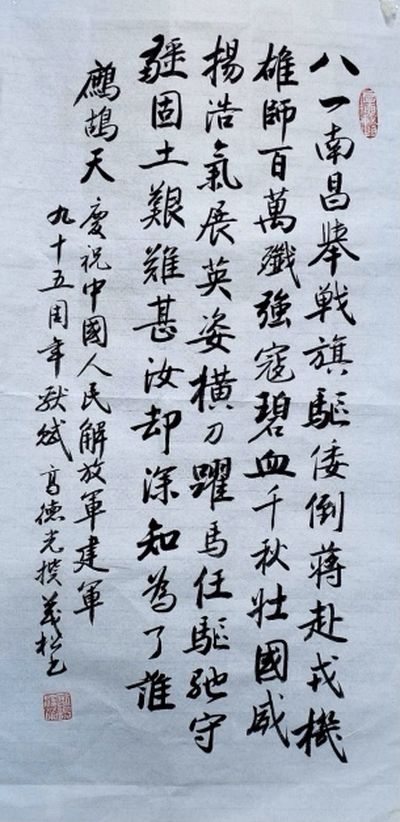 八一南昌舉戰旗驅倭倒蔣赴戎機
雄師百萬殲強寇碧血千秋壯國威
揚浩氣展英姿橫刀躍馬任驅馳守
疆固土艱難甚汝却深知為了誰
鷓鴣天 慶祝中國人民解放軍建軍
九十五周年獻賦 高德光撰